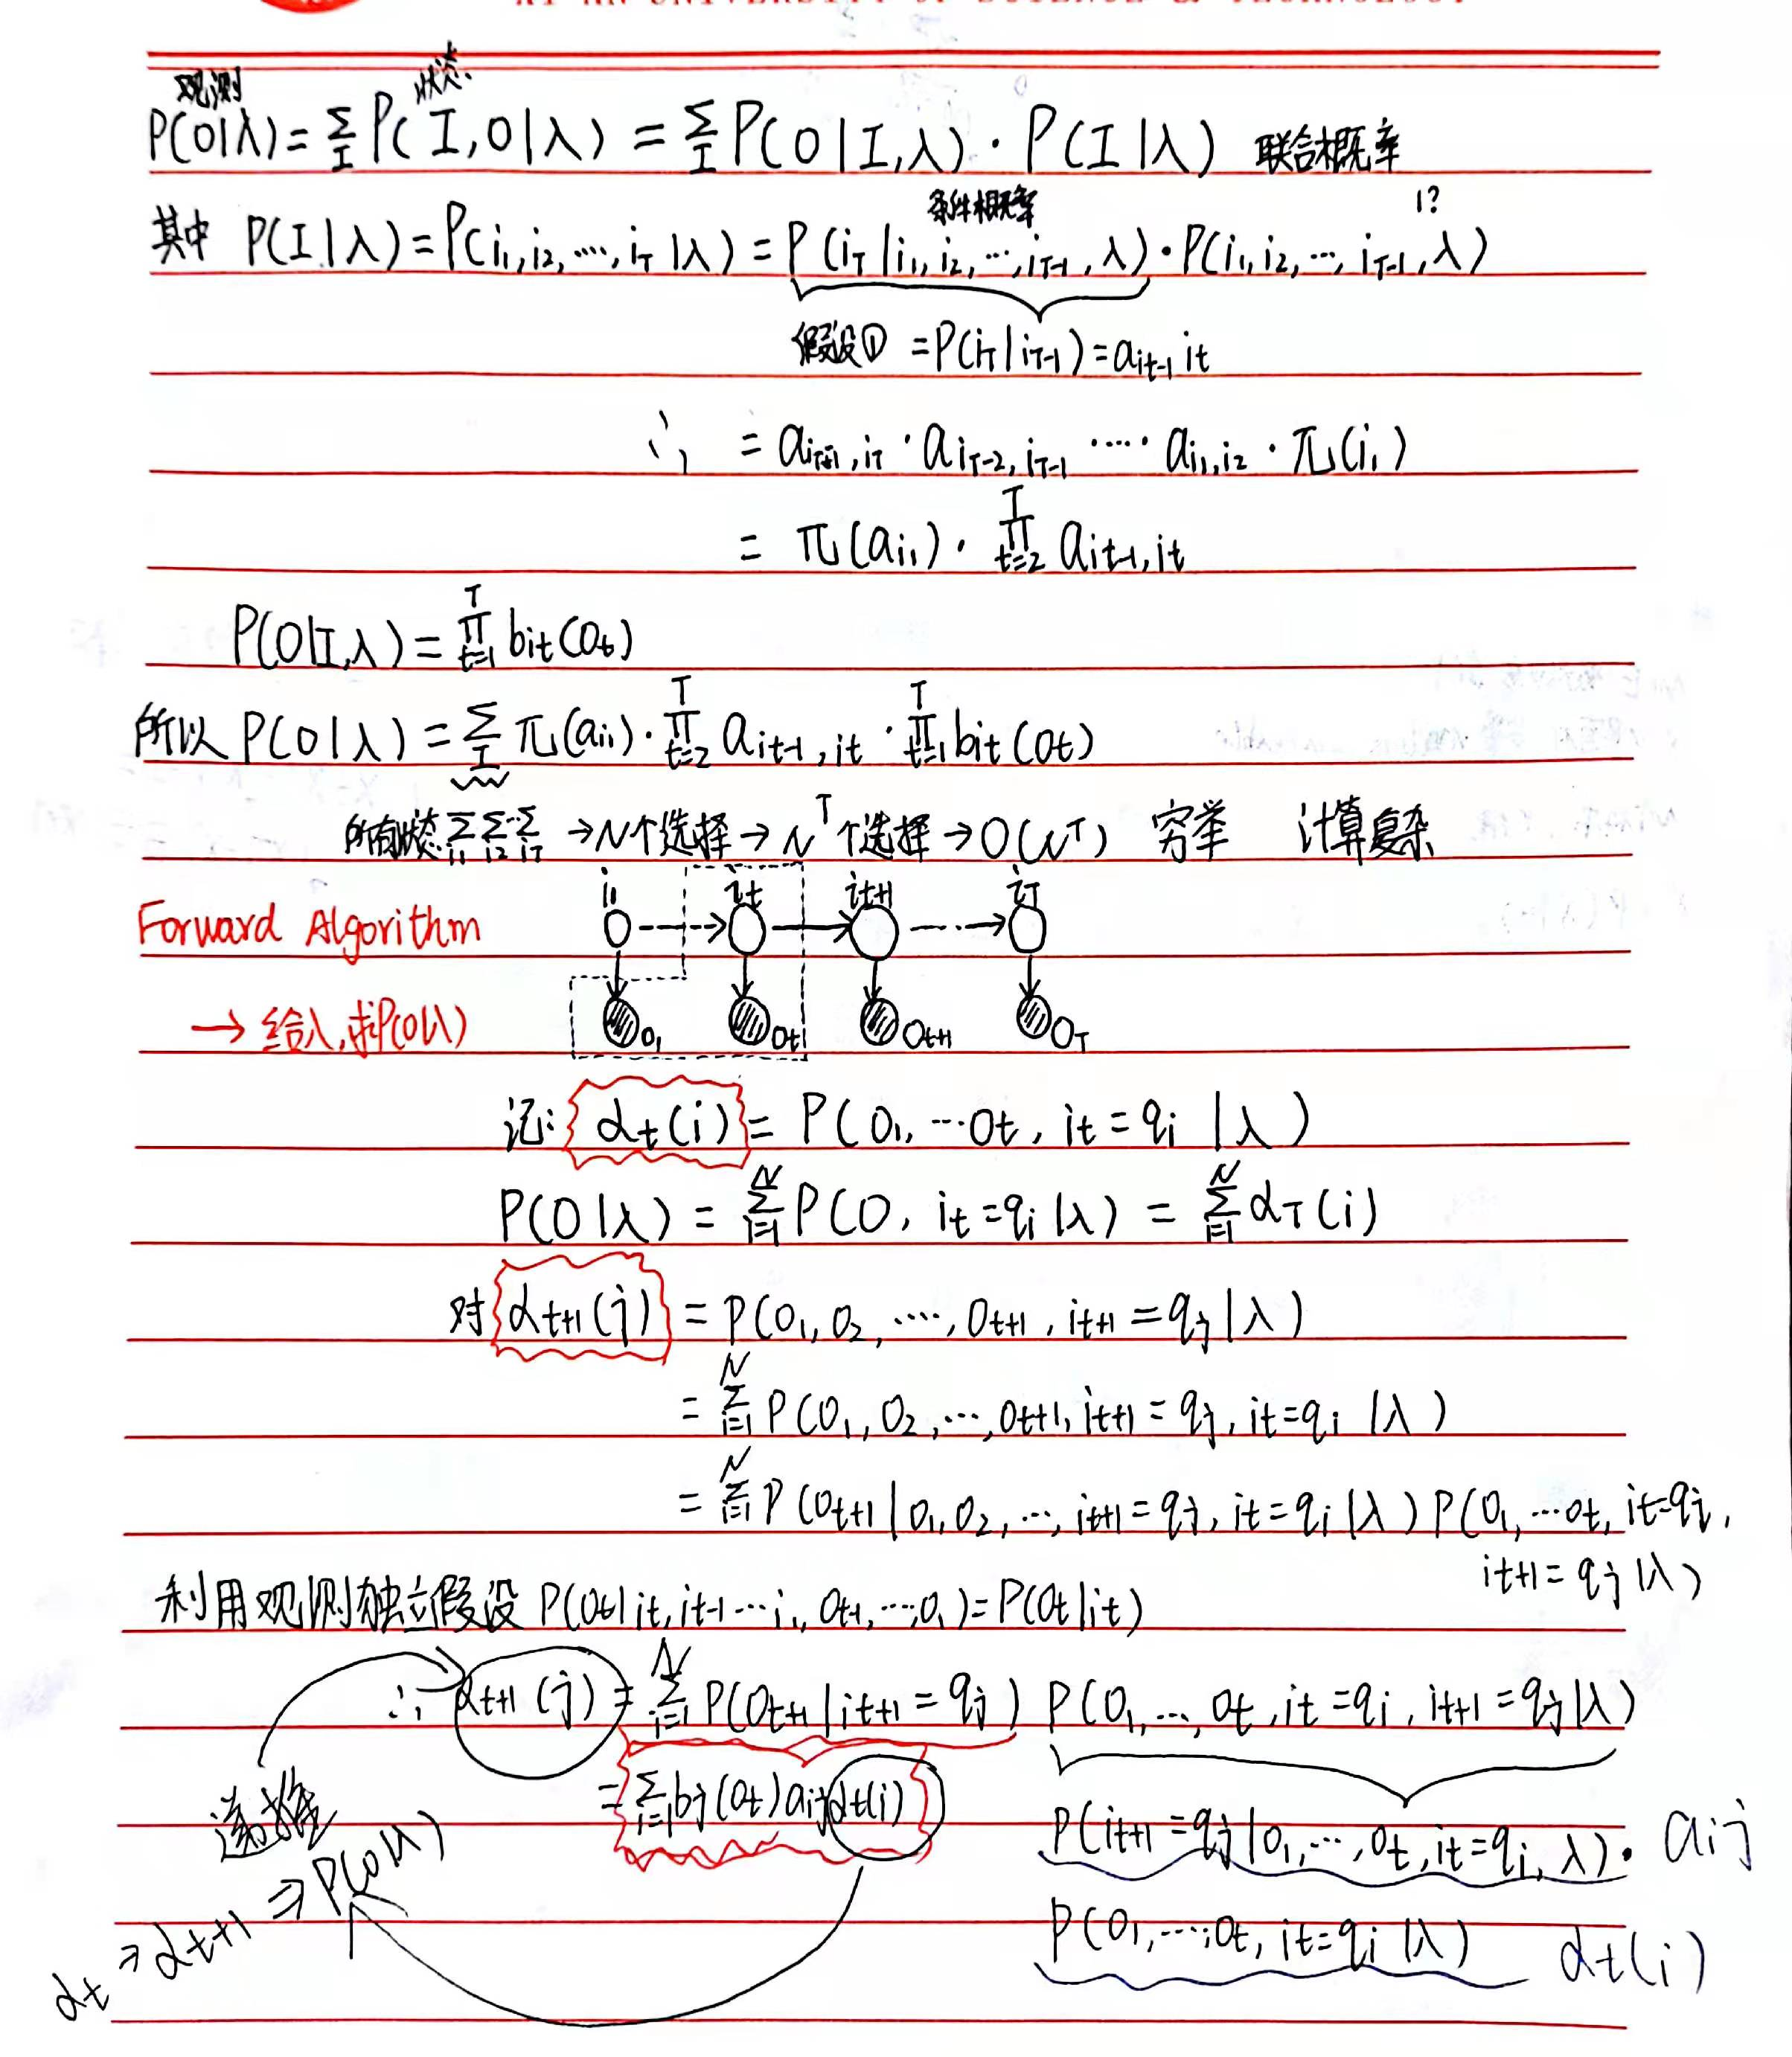 XI'AN UNIVERSITY OF SCIENCE & TECHNOLOGY
观测 状态
P(O|λ) = Σ_I P(I,O|λ) = Σ_I P(O|I,λ)·P(I|λ) 联合概率
条件概率 1?
其中 P(I|λ) = P(i₁,i₂,…,i_T|λ) = P(i_T|i₁,i₂,…,i_{T-1},λ)·P(i₁,i₂,…,i_{T-1},λ)
假设① = P(i_T|i_{T-1}) = a_{it-1 it}
∴ = a_{iT-1,iT}·a_{iT-2,iT-1}……a_{i1,i2}·π(i₁)
= π(a_{i1})·∏_{t=2}^{T} a_{it-1,it}
P(O|I,λ) = ∏_{t=1}^{T} b_{it}(o_t)
所以 P(O|λ) = Σ_I π(a_{i1})·∏_{t=2}^{T} a_{it-1,it}·∏_{t=1}^{T} b_{it}(o_t)
所有状态 Σ_{i1} Σ_{i2}…Σ_{iT} → N个选择 → N^T个选择 → O(N^T) 穷举 计算复杂
i₁ i_t i_{t+1} i_T
Forward Algorithm
→ 给λ,求P(O|λ)
o₁ o_t o_{t+1} o_T
记: α_t(i) = P(o₁,…o_t, i_t=q_i|λ)
P(O|λ) = Σ_{i=1}^{N} P(O, i_t=q_i|λ) = Σ_{i=1}^{N} α_T(i)
对 α_{t+1}(j) = P(o₁,o₂,……,o_{t+1}, i_{t+1}=q_j|λ)
= Σ_{i=1}^{N} P(o₁,o₂,…,o_{t+1}, i_{t+1}=q_j, i_t=q_i|λ)
= Σ_{i=1}^{N} P(o_{t+1}|o₁,o₂,…, i_{t+1}=q_j, i_t=q_i|λ) P(o₁,…o_t, i_t=q_i,
i_{t+1}=q_j|λ)
利用观测独立假设 P(o_t|i_t,i_{t-1}…i₁,o_{t-1},…,o₁) = P(o_t|i_t)
∴ α_{t+1}(j) = Σ_{i=1}^{N} P(o_{t+1}|i_{t+1}=q_j) P(o₁,…,o_t, i_t=q_i, i_{t+1}=q_j|λ)
= Σ_{i=1} b_j(o_t) a_{ij} α_t(i)
P(i_{t+1}=q_j|o₁,…,o_t, i_t=q_i, λ)· a_{ij}
递推
α_t ⇒ α_{t+1} ⇒ P(O|λ)
P(o₁,…,o_t, i_t=q_i|λ) α_t(i)